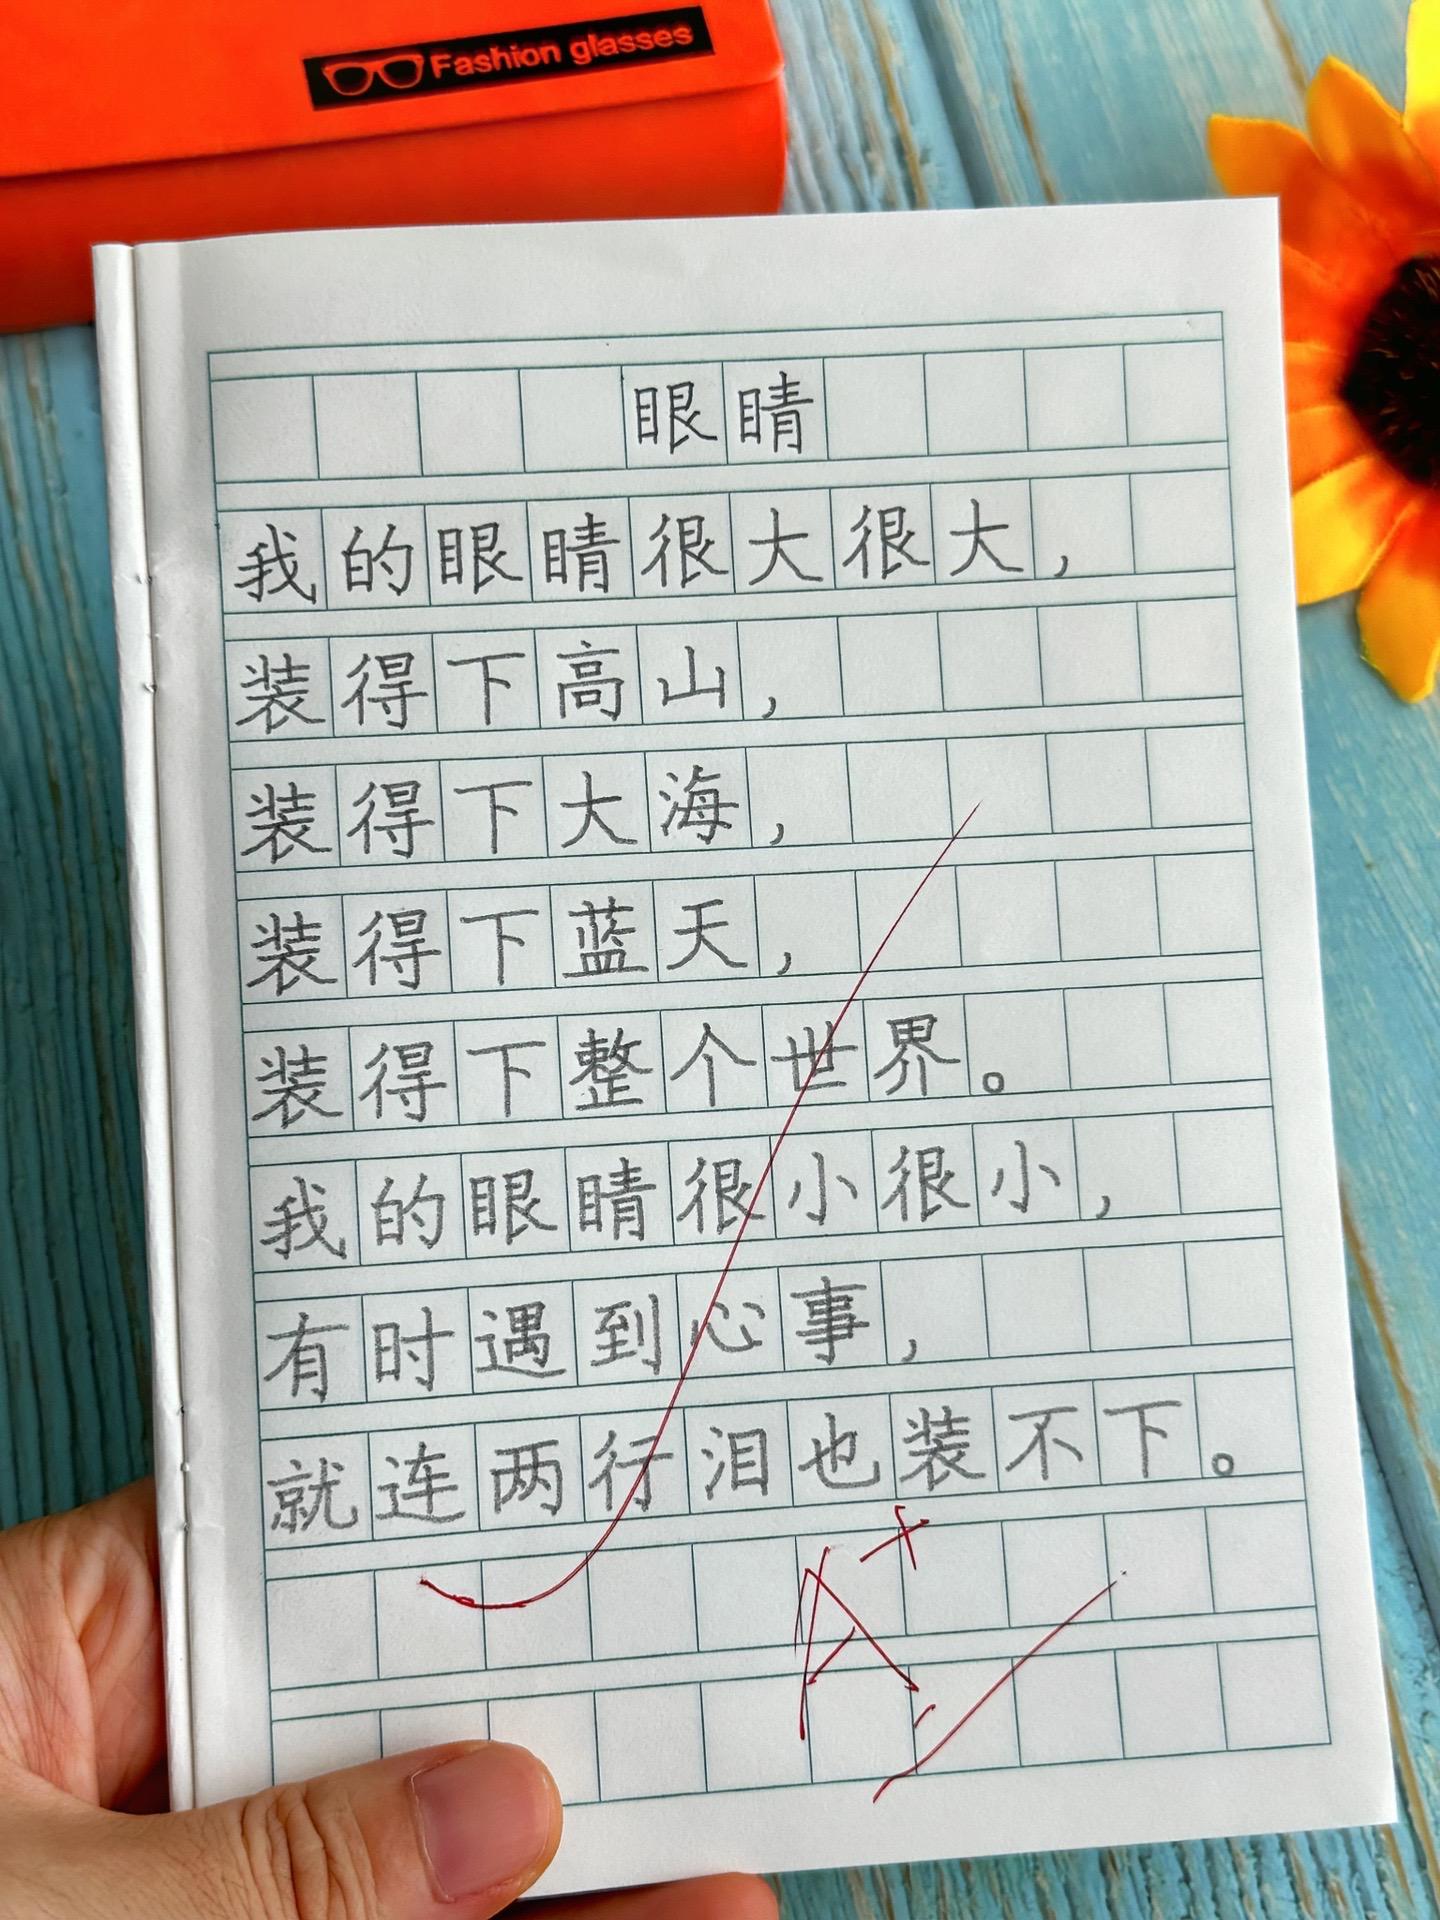 Fashion glasses
眼睛
我的眼睛很大很大，
装得下高山，
装得下大海，
装得下蓝天，
装得下整个世界。
我的眼睛很小很小，
有时遇到心事，
就连两行泪也装不下。
A+